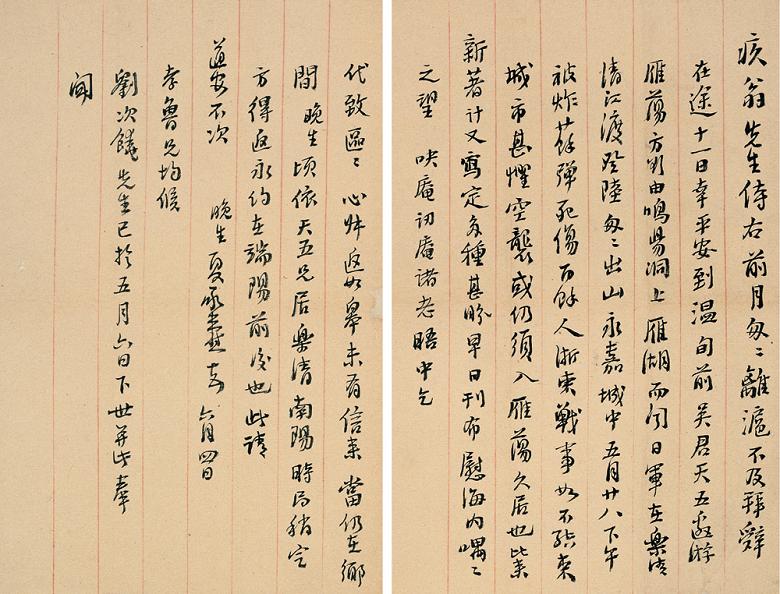 疚翁先生侍右前月匆匆離滬不及拜辭
在途十一日幸平安到溫旬前吳君天五邀游
雁蕩方劃由鳴陽洞上雁湖而聞日軍在樂清
清江渡登陸匆匆出山永嘉城中五月廿八下午
被炸廿餘彈死傷百餘人浙東戰事如不結束
城市甚懼空襲或仍須入雁蕩久居也此來
新著計又寫定多種甚盼早日刊布慰海内喁喁
之望 吷庵訒庵諸老晤中乞
代致區區心叔返如皋未有信來當仍在鄉
間 晚生頃依天五兄居樂清南陽時局稍定
方得返永約在端陽前後也此請
道安不次 晚生夏承燾上 六月四日
孝魯兄均候
劉次饒先生已於五月六日下世并此奉
聞